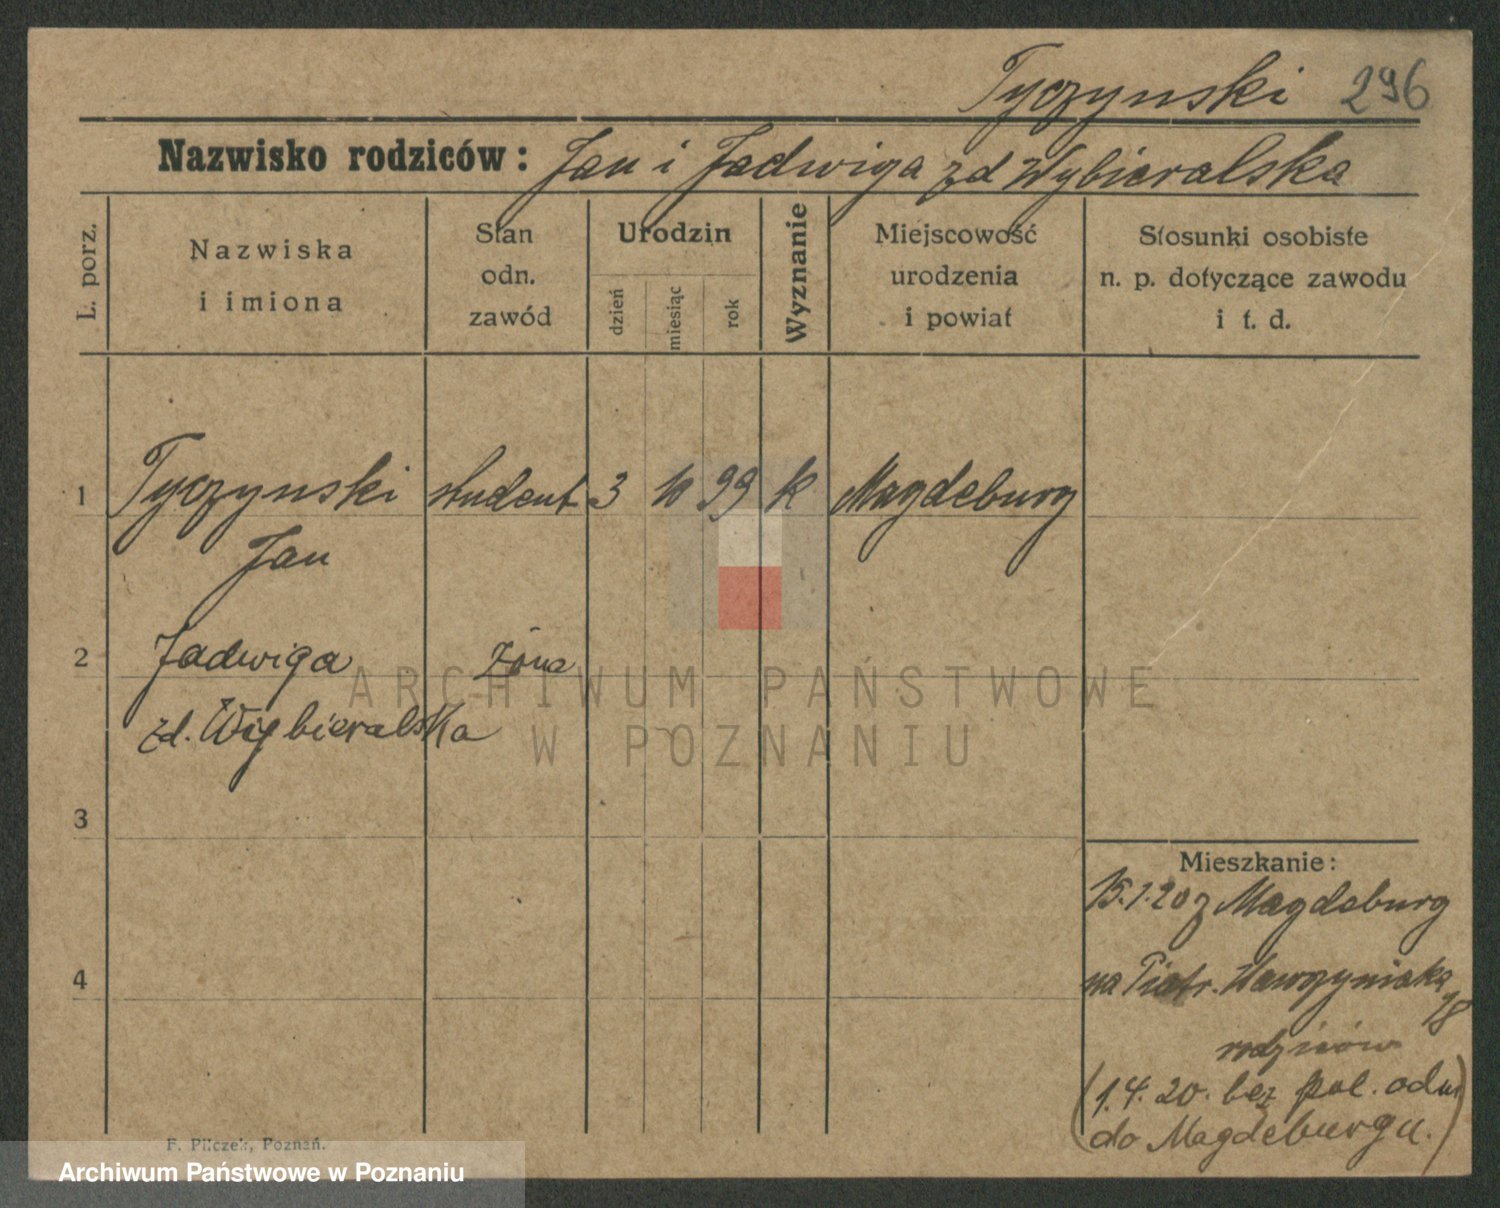 Tyczynski 296
Nazwisko rodziców: Jan i Jadwiga zd Wybieralska
L. porz.
Nazwiska i imiona
Stan odn. zawód
Urodzin
dzień miesiąc rok
Wyznanie
Miejscowość urodzenia i powiat
Stosunki osobiste n. p. dotyczące zawodu i t. d.
1 Tyczynski student 3 10 99 k Magdeburg
Jan
2 Jadwiga żona
zd. Wybieralska
3
4
Mieszkanie:
15.1.20 z Magdeburg
na Piotr. Wawrzyniaka
18
rodziców
(1.4.20. bez pol. odm
do Magdeburgu.)
F. Pilczek, Poznań.
ARCHIWUM PAŃSTWOWE
W POZNANIU
Archiwum Państwowe w Poznaniu